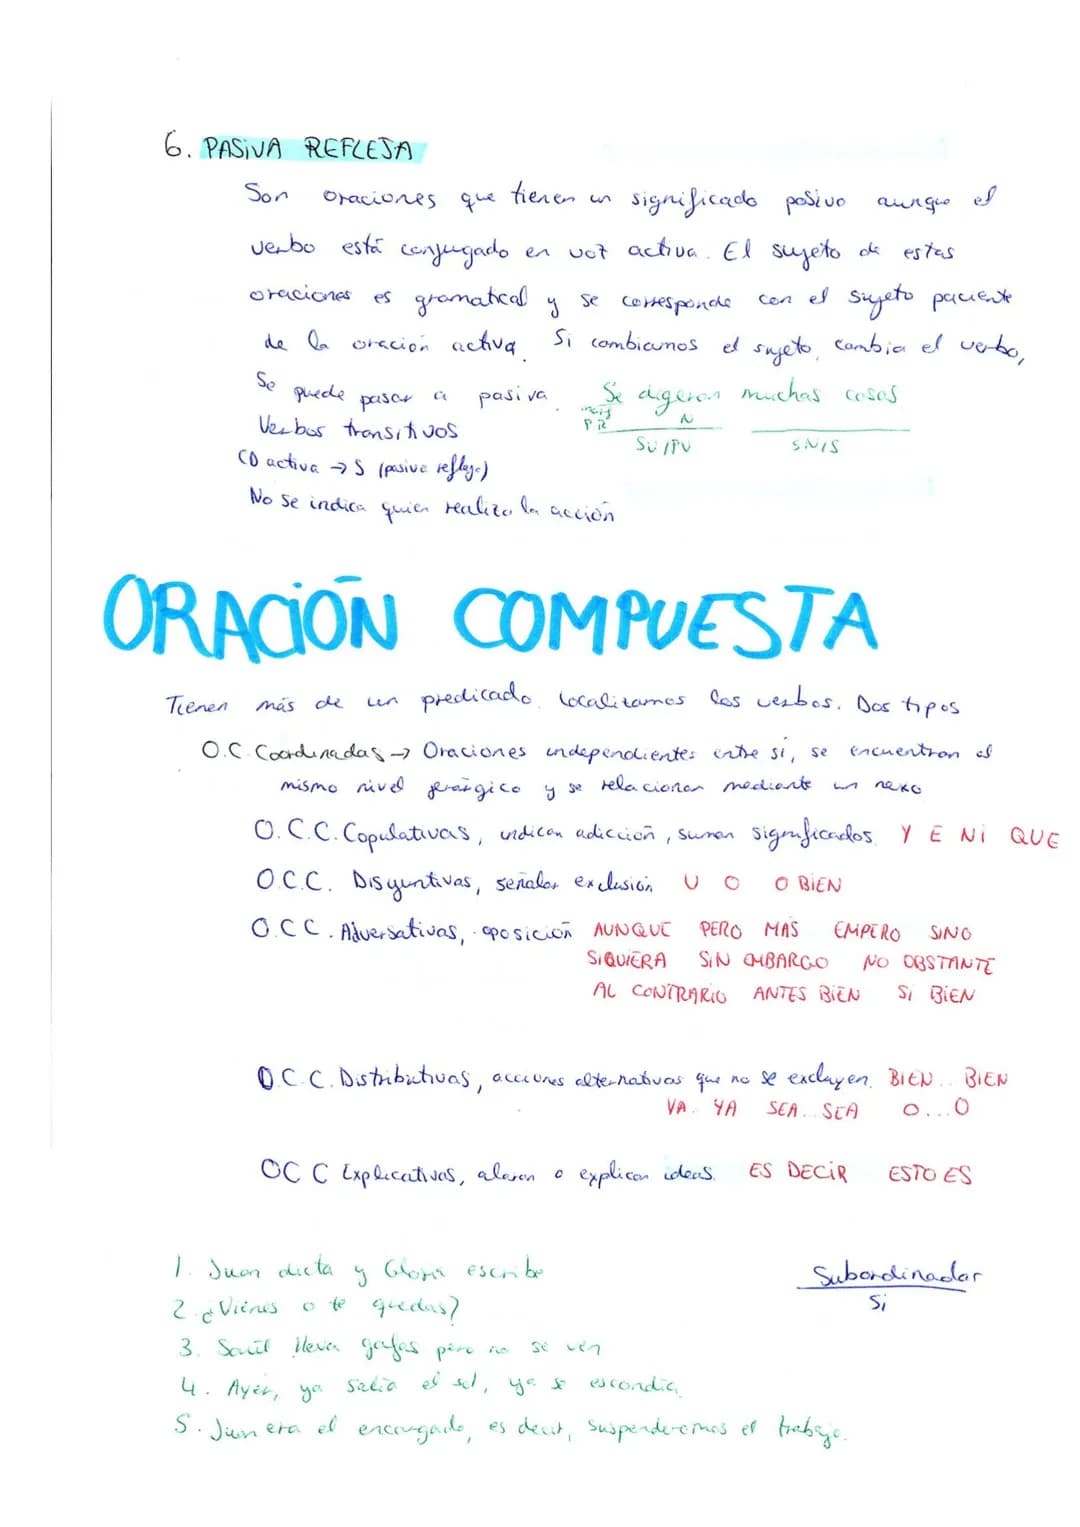 6. PASIVA REFLEJA
Son oraciones que tienen un significado pasivo aunque el
verbo está conjugado en voz activa. El sujeto de estas
oraciones es gramatical y se corresponde con el sujeto paciente
de la oración activa. Si cambiamos el sujeto, cambia el verbo,
Se puede pasar a pasiva. Se digeron muchas cosas
Verbos transitivos PR N
SV/PV SN/S
CD activa → S (pasiva refleja)
No se indica quien realiza la acción
ORACIÓN COMPUESTA
Tienen más de un predicado. Localizamos los verbos. Dos tipos
O.C. Coordinadas → Oraciones independientes entre sí, se encuentran al
mismo nivel jerárgico y se relacionan mediante un nexo
O.C.C. Copulativas, indican adicción, suman significados. Y E NI QUE
O.C.C. Disyuntivas, señalan exclusión U O O BIEN
O.C.C. Adversativas, oposición AUNQUE PERO MAS EMPERO SINO
SIQUIERA SIN EMBARGO NO OBSTANTE
AL CONTRARIO ANTES BIEN SI BIEN
O.C.C. Distributivas, acciones alternativas que no se excluyen. BIEN... BIEN
YA.. YA SEA... SEA O...O
OC C Explicativas, alaran o explican ideas. ES DECIR ESTO ES
1. Juan dicta y Gloria escribe
2. ¿Vienes o te quedas?
3. Saúl lleva gafas pero no se ven
4. Ayer, ya salía el sol, ya se escondía
5. Juan era el encargado, es decir, suspenderemos el trabajo.
Subordinadas
Si